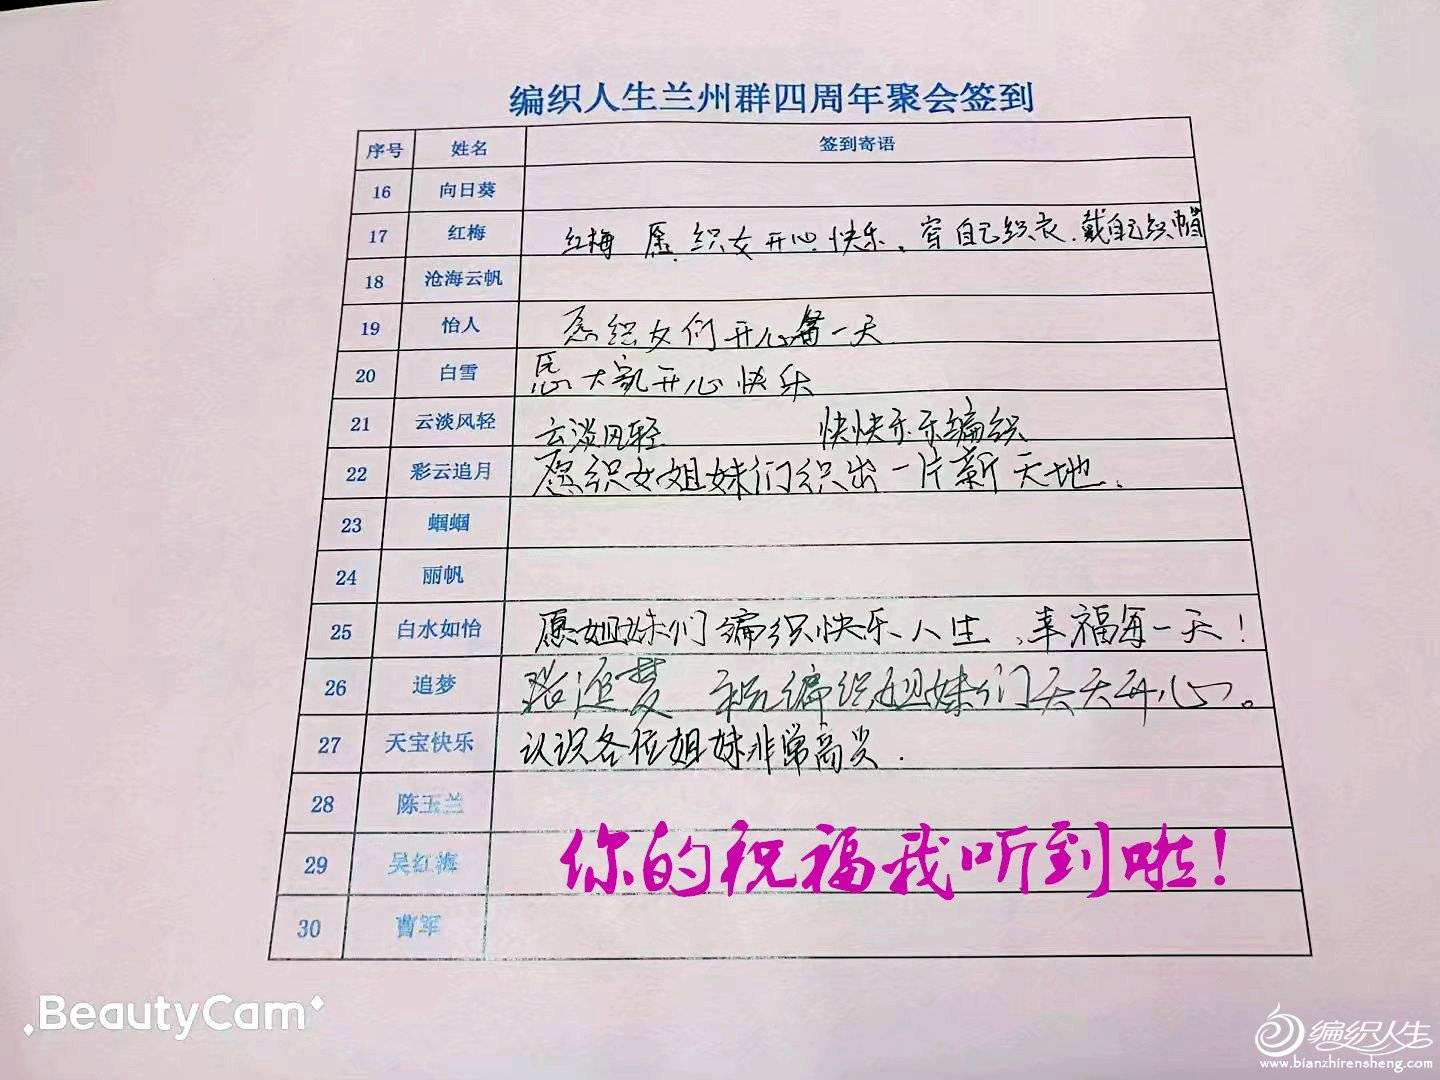 编织人生兰州群四周年聚会签到
序号 姓名 签到寄语
16 向日葵
17 红梅 红梅 愿 织女开心快乐。穿自己织衣.戴自己织帽
18 沧海云帆
19 怡人 愿织女们开心每一天
20 白雪 愿大家开心快乐
21 云淡风轻 云淡风轻 快快乐乐编织
22 彩云追月 愿织女姐妹们织出一片新天地.
23 蝈蝈
24 丽帆
25 白水如怡 愿姐妹们编织快乐人生、幸福每一天!
26 追梦 追梦 祝编织姐妹们天天开心。
27 天宝快乐 认识各位姐妹非常高兴.
28 陈玉兰
29 吴红梅 你的祝福我听到啦!
30 曹军
BeautyCam
编织人生
www.bianzhirensheng.com